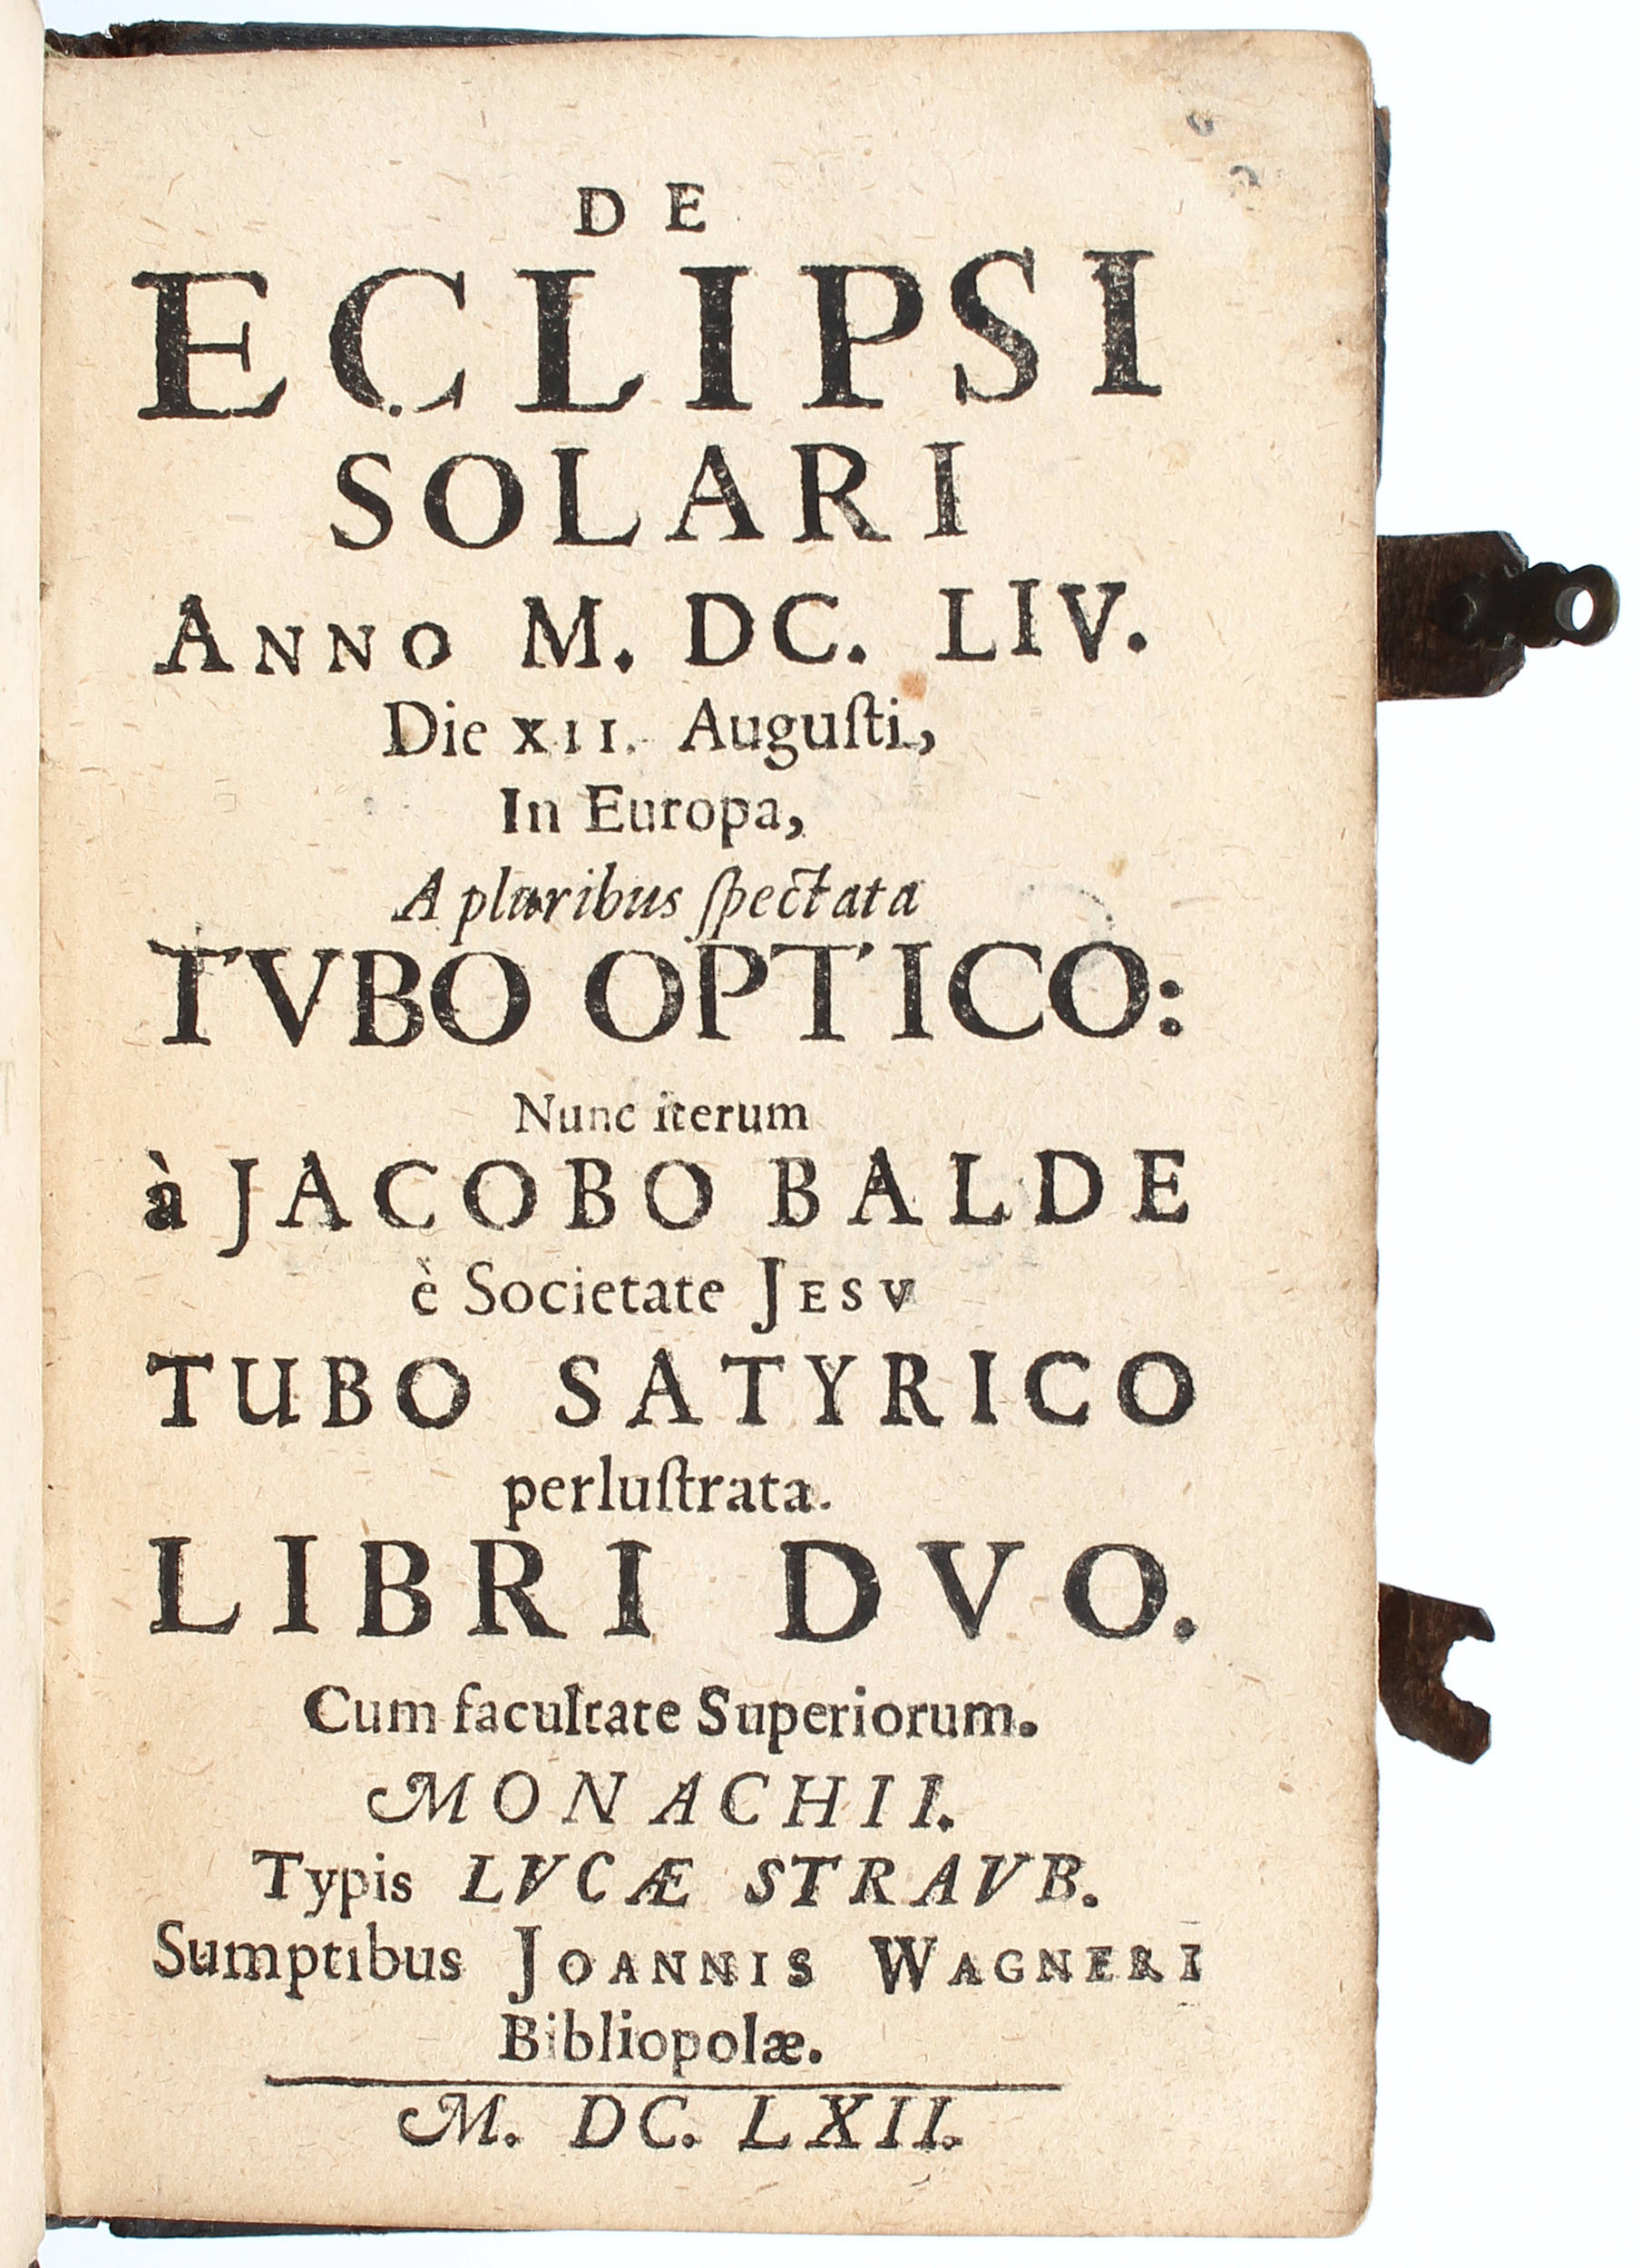 DE
ECLIPSI
SOLARI
ANNO M. DC. LIV.
Die XII. Auguſti,
In Europa,
A pluribus ſpectata
TVBO OPTICO:
Nunc iterum
à JACOBO BALDE
è Societate JESV
TUBO SATYRICO
perluſtrata.
LIBRI DVO.
Cum facultate Superiorum.
MONACHII.
Typis LVCÆ STRAVB.
Sumptibus JOANNIS WAGNERI
Bibliopolæ.
M. DC. LXII.